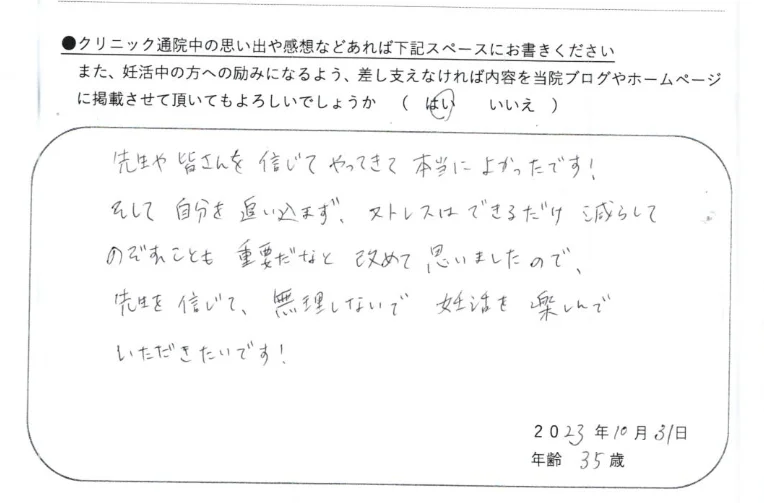 ●クリニック通院中の思い出や感想などあれば下記スペースにお書きください
また、妊活中の方への励みになるよう、差し支えなければ内容を当院ブログやホームページ
に掲載させて頂いてもよろしいでしょうか （ はい いいえ ）
先生や皆さんを信じてやってきて本当によかったです!
そして自分を追い込まず、ストレスはできるだけ減らして
のぞむことも重要だなと改めて思いましたので、
先生を信じて、無理しないで妊活を楽しんで
いただきたいです!
2023年10月31日
年齢 35歳